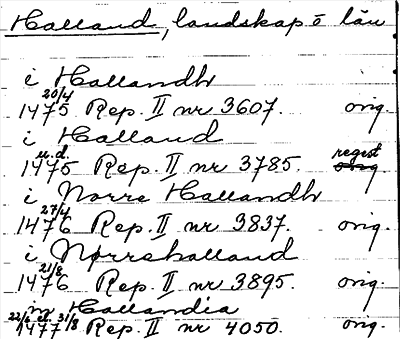 Halland, landskap o län
i Hallandh
1475 20/4 Rep. II nr 3607. orig.
i Halland
1475 u.d. Rep. II nr 3785. regest
i Norre Hallandh
1476 27/4 Rep. II nr 3837. orig.
i Nørrehalland
1476 21/8 Rep. II nr 3895. orig.
in Hallandia
1477 22/6 el. 31/8 Rep. II nr 4050. orig.